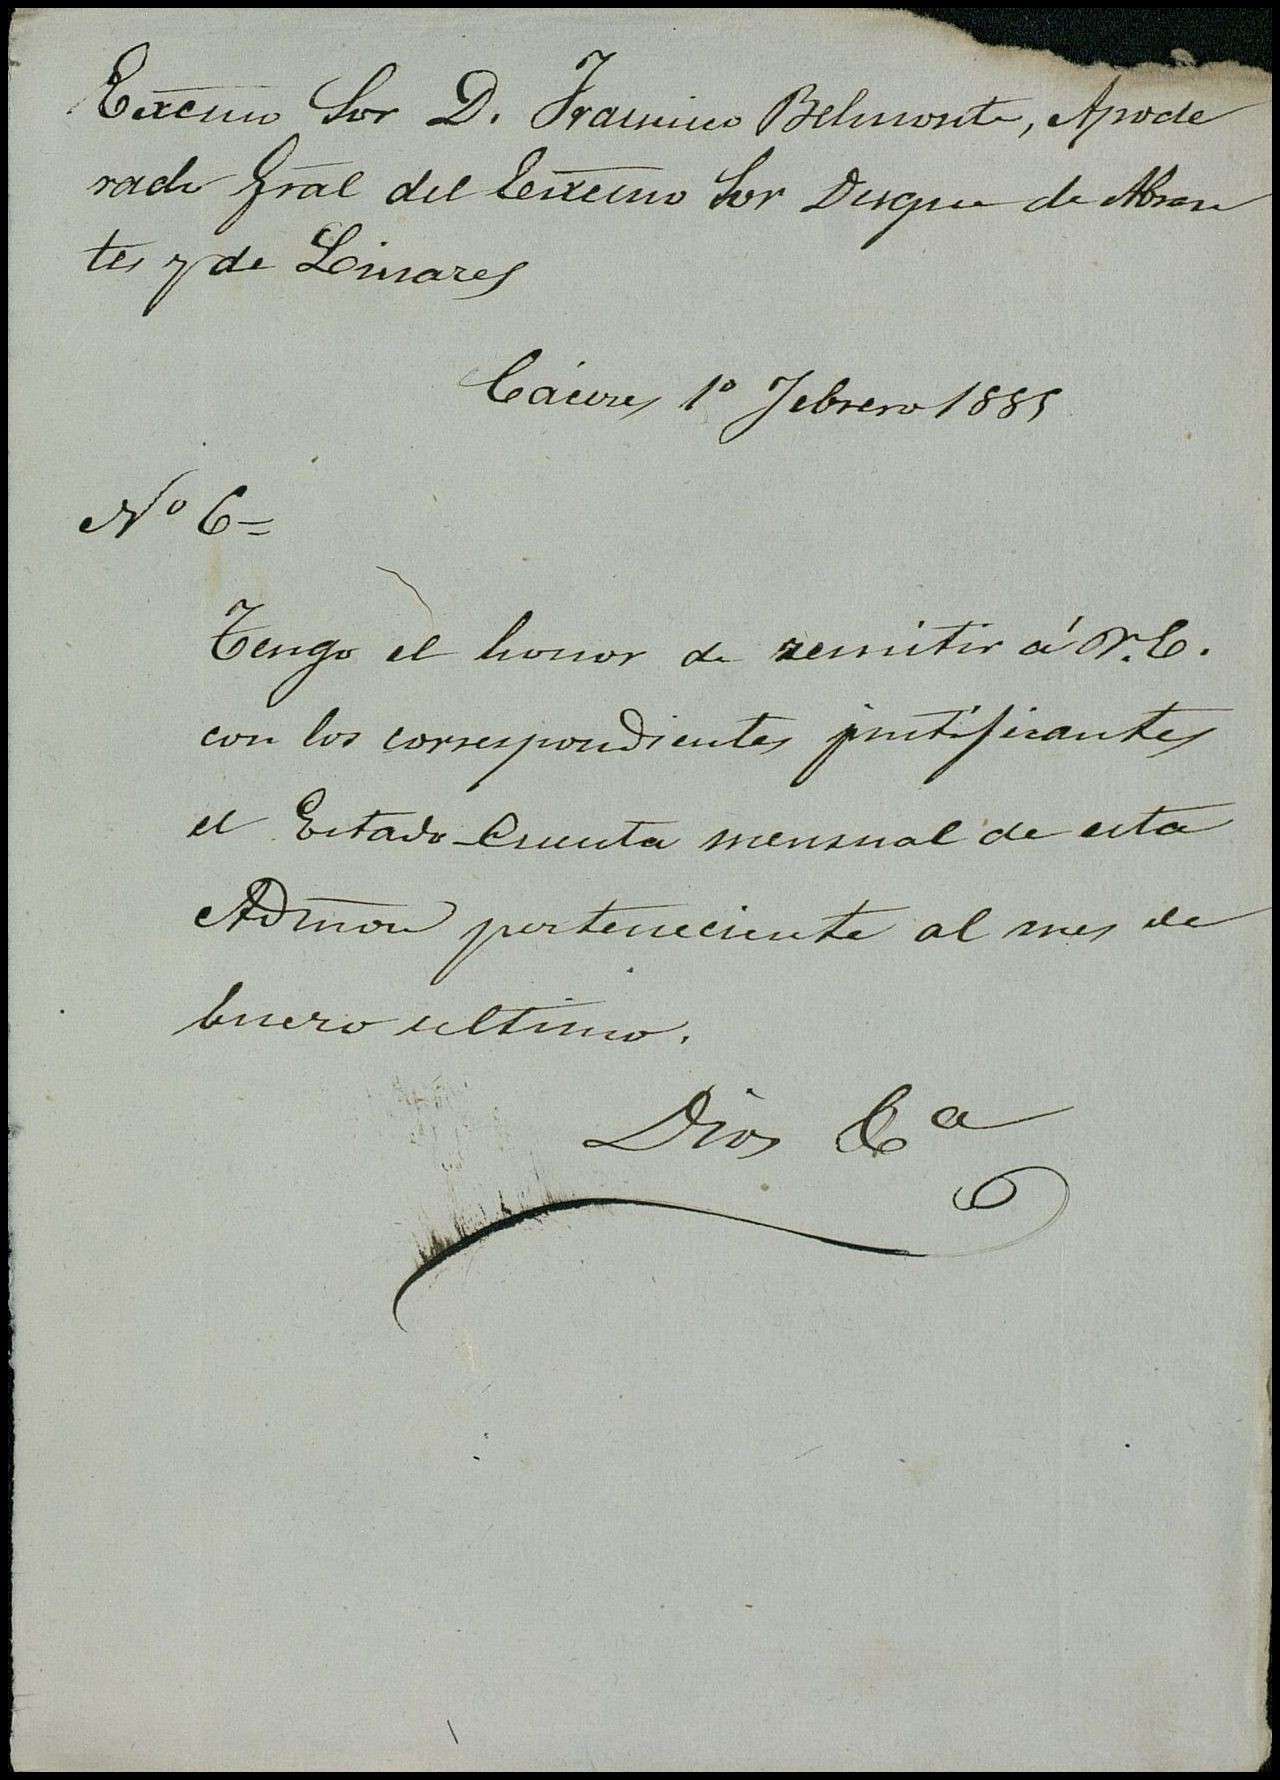 Excmo Sor D. Francisco Belmonte, Apode
rado Gral del Excmo Sor Duque de Abran
tes y de Linares
Cáceres 1º Febrero 1885
Nº 6=
Tengo el honor de remitir á V.E.
con los correspondientes justificantes
el Estado-Cuenta mensual de esta
Admon perteneciente al mes de
Enero ultimo.
Dios &a